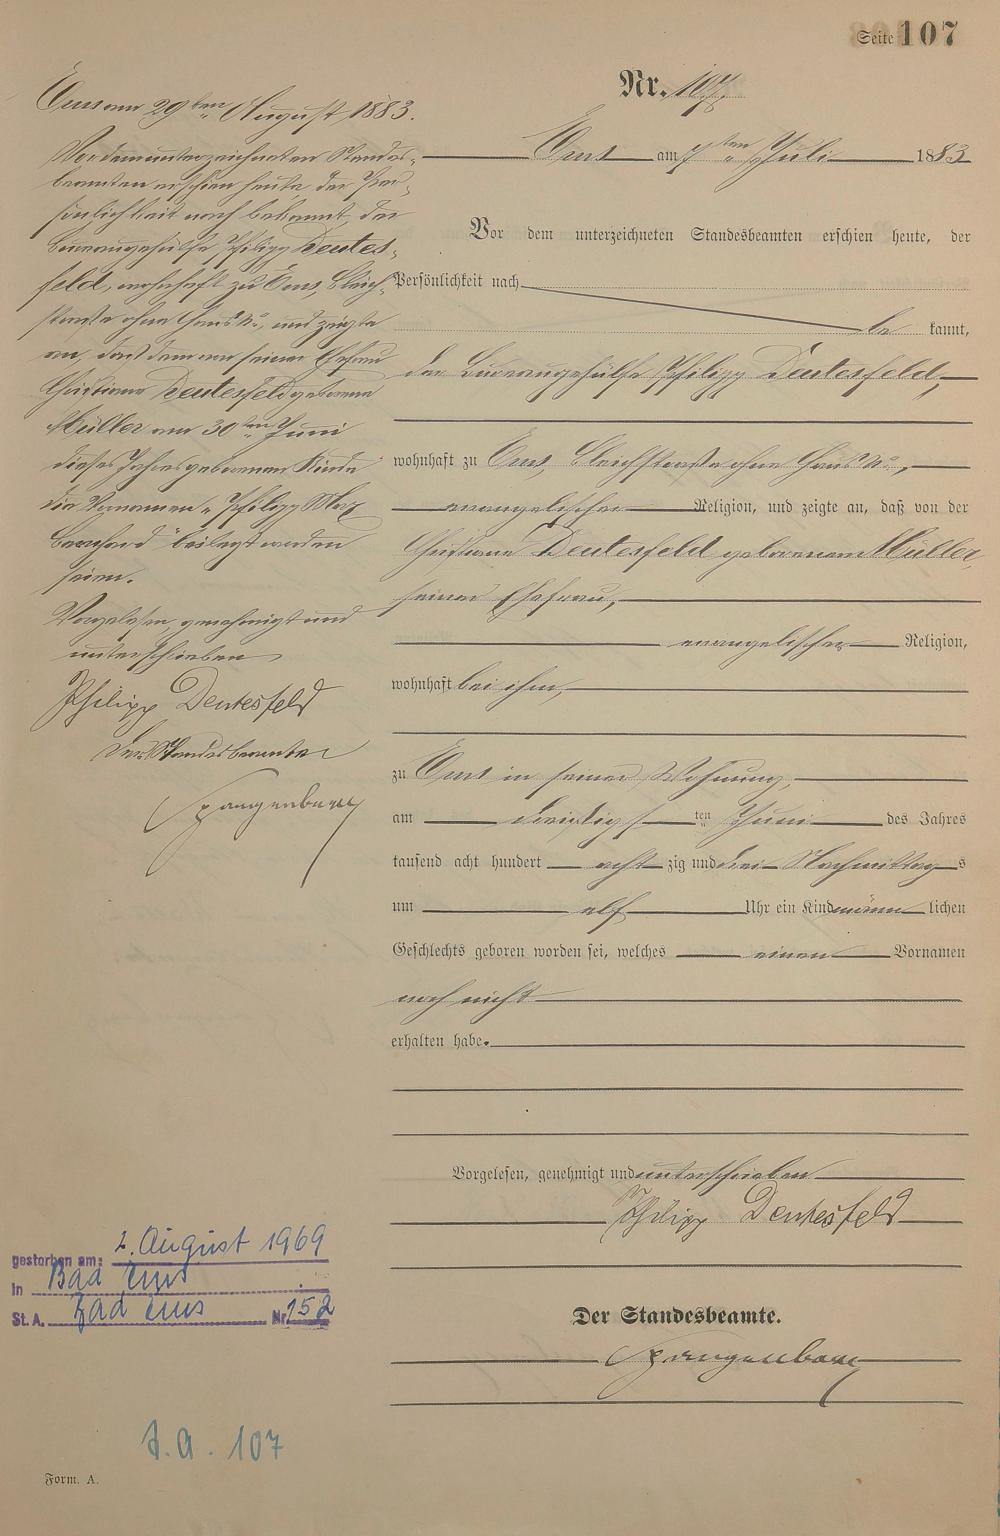 Seite 107
Nr. 107.
Ems am 7ten Juli 1883
Vor dem unterzeichneten Standesbeamten erschien heute, der
Persönlichkeit nach
be kannt,
der Büreaugehülfe Philipp Deutesfeld,
wohnhaft zu Ems, Bleichstraße ohne Haus No.,
evangelischer Religion, und zeigte an, daß von der
Christiane Deutesfeld geborenen Müller,
seiner Ehefrau,
evangelischer Religion,
wohnhaft bei ihm,
zu Ems in seiner Wohnung,
am dreißigsten Juni des Jahres
tausend acht hundert acht zig und drei Nachmittags
um elf Uhr ein Kind männlichen
Geschlechts geboren worden sei, welches einen Vornamen
noch nicht
erhalten habe.
Vorgelesen, genehmigt und unterschrieben
Philipp Deutesfeld
Der Standesbeamte.
Spangenberg
Ems am 29ten August 1883.
Vor dem unterzeichneten Standes-
beamten erschien heute, der Per-
sönlichkeit nach bekannt, der
Büreaugehülfe Philipp Deutes-
feld, wohnhaft zu Ems, Bleich-
straße ohne Haus No., und zeigte
an, daß dem von seiner Ehefrau
Christiane Deutesfeld geborene
Müller am 30ten Juni
dieses Jahres geborenen Kinde
die Vornamen „Philipp Max
Bernhard" beilegt worden
seien.
Vorgelesen, genehmigt und
unterschrieben
Philipp Deutesfeld
Der Standesbeamte
Spangenberg
gestorben am: 2. August 1969
in Bad Ems
St. A. Bad Ems Nr. 152
107
Form. A.